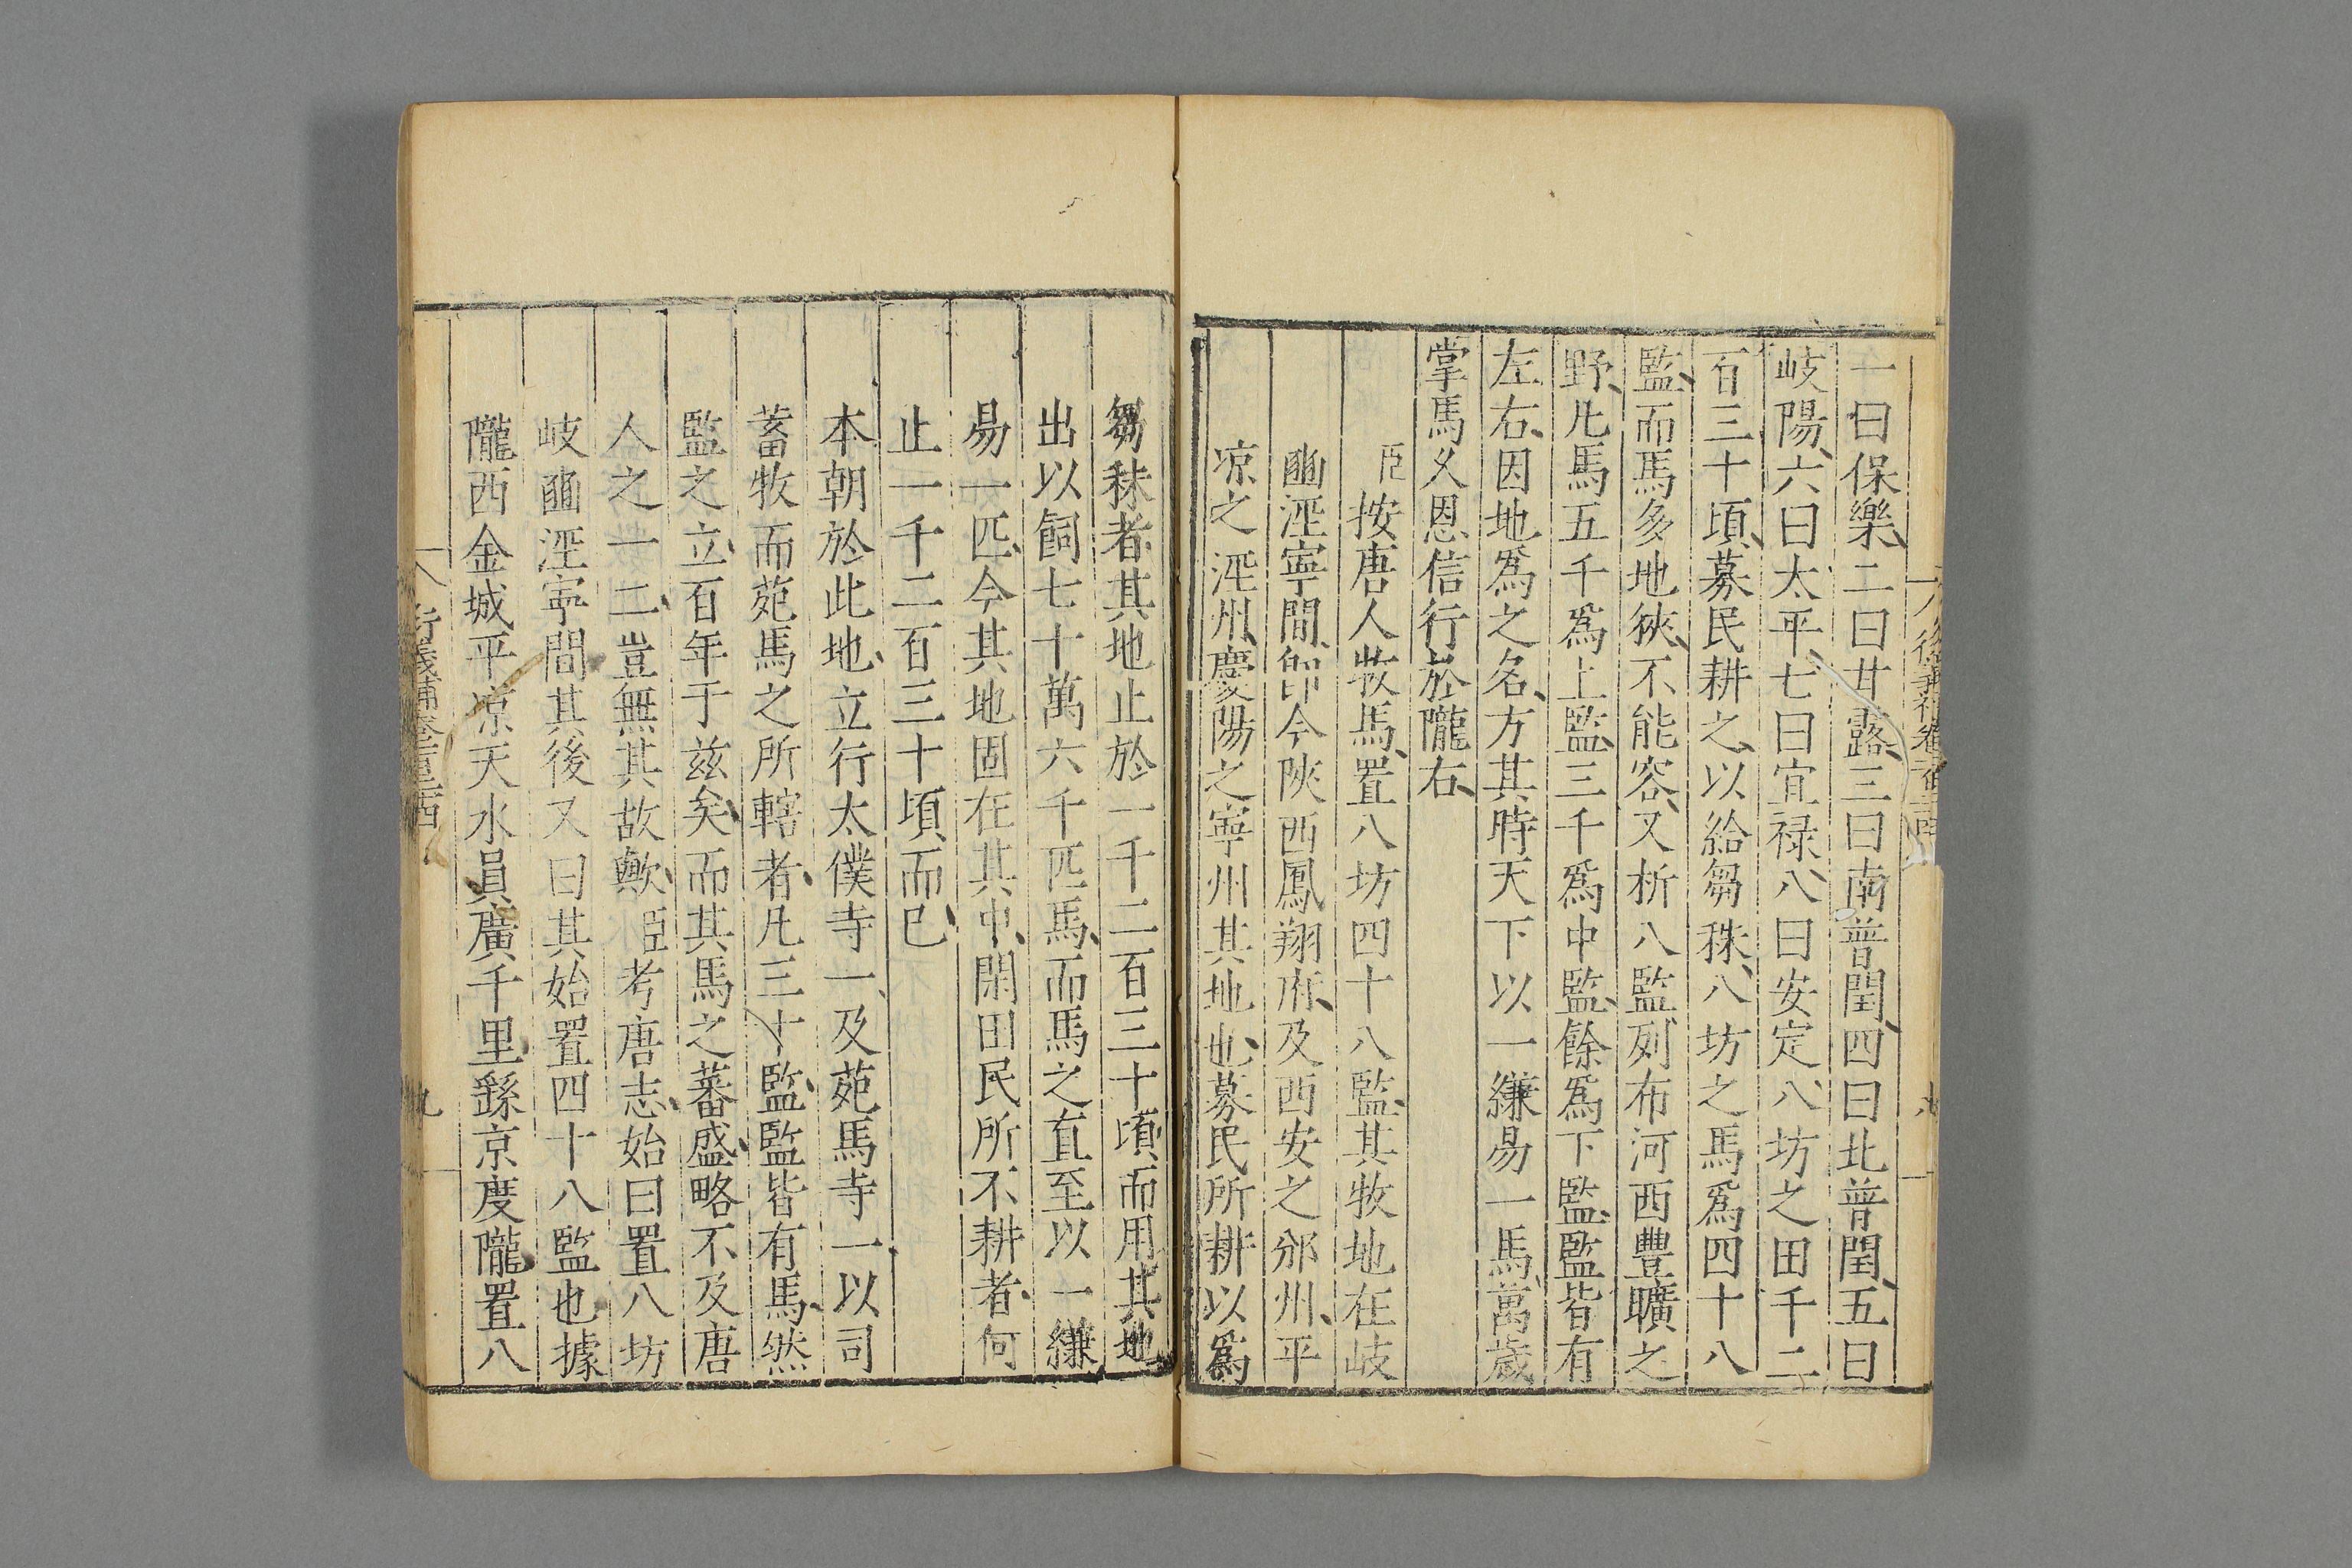 一曰保樂、二曰甘露、三曰南普閏、四曰北普閏、五曰
岐陽、六曰太平、七曰宜禄、八曰安定、八坊之田千二
百三十頃、募民耕之、以給芻秣、八坊之馬爲四十八
監、而馬多地狹、不能容、又析八監列布河西豐曠之
野、凡馬五千爲上監、三千爲中監、餘爲下監、監皆有
左右、因地爲之名、方其時天下以一縑易一馬、萬歲
掌馬乆恩信行於隴右、
臣按唐人牧馬、置八坊四十八監、其牧地在岐
豳涇寧間、卽今陜西鳳翔府、及西安之邠州、平
凉之涇州、慶陽之寧州其地也、募民所耕以爲
芻秣者、其地止於一千二百三十頃、而用其地
出以飼七十萬六千匹馬、而馬之直至以一縑
易一匹、今其地固在其中、閑田民所不耕者、何
止一千二百三十頃、而已、
本朝於此地、立行太僕寺一、及苑馬寺一、以司
蓄牧而苑馬之所轄者、凡三十監、監皆有馬、然
監之立、百年于兹矣、而其馬之蕃盛、略不及唐
人之一二、豈無其故歟、臣考唐志、始曰置八坊
岐豳涇寧間其後又曰其始置四十八監也據
隴西金城平凉天水員廣千里繇京度隴置八
衍義補卷一百二十四
九